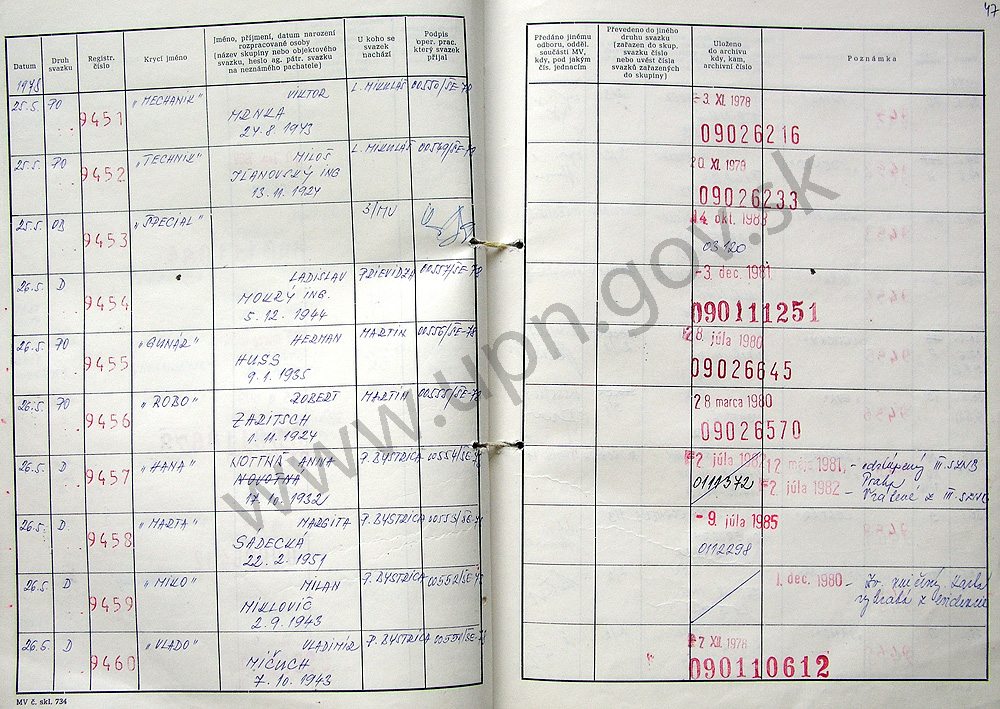 47
Datum
Druh svazku
Registr. číslo
Krycí jméno
Jméno, příjmení, datum narození rozpracované osoby (název skupiny nebo objektového svazku, heslo ag. pátr. svazku na neznámého pachatele)
U koho se svazek nachází
Podpis oper. prac. který svazek přijal
Předáno jinému odboru, odděl. součásti MV, kdy, pod jakým čís. jednacím
Převedeno do jiného druhu svazku (zařazen do skup. svazku číslo nebo uvést čísla svazků zařazených do skupiny)
Uloženo do archivu kdy, kam, archivní číslo
Poznámka
1978
25.5. PO 9451 „MECHANIK" VIKTOR L. MIKULÁŠ 00550/ŠE-78 -3. XI. 1978
MRNKA
24.8 1943 09026216
25.5. PO 9452 „TECHNIK" MILOŠ L. MIKULÁŠ 00549/ŠE-78 20. XI. 1978
ILANOVSKÝ ING
13.11.1924 09026233
25.5. OB 9453 „ŠPECIAL" 3/MV 14. okt. 1988
03120
26.5. D 9454 LADISLAV PRIEVIDZA 00557/ŠE-78 -3. dec. 1981
MOKRÝ ING.
5.12.1944 090111251
26.5. PO 9455 „GUNAR" HERMAN MARTIN 00556/ŠE-78 28. júla 1980
HUSS
9.1.1935 09026645
26.5. PO 9456 „ROBO" ROBERT MARTIN 00555/ŠE-78 28. marca 1980
ZARITSCH
1.11.1924 09026570
26.5. D 9457 „HANA" NOTTNÁ ANNA P. BYSTRICA 00554/ŠE-78 -2. júla 1982 12 mája 1981, - odstúpený III. SZNB
NOVOTNÁ 0111372 Praha
17.10.1932 -2. júla 1982 - Vrátené z III. SZNB
26.5. D 9458 „MARTA" MARGITA P. BYSTRICA 00553/ŠE-78 -9. júla 1985
SÁDECKÁ
22.2.1951 0112298
26.5. D 9459 „MIKO" MILAN P. BYSTRICA 00552/ŠE-78 1. dec. 1980 - zničený, karta
MIKLOVIČ vybratá z evidencie
2.9.1943
26.5. D 9460 „VLADO" VLADIMÍR P. BYSTRICA 00551/ŠE-78 -7 XII. 1978
MIČUCH
7.10.1943 090110612
MV č. skl. 734
www.upn.gov.sk